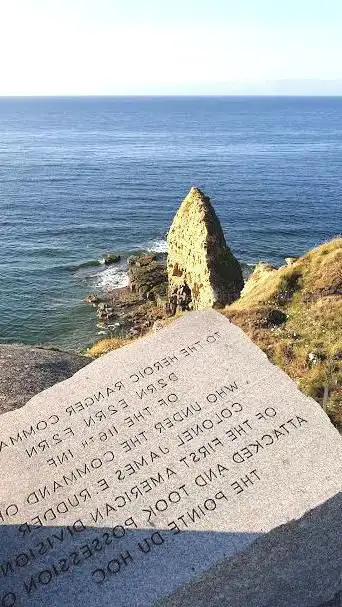 TO THE HEROIC RANGER COMMA
D2RN E2RN F2RN
OF THE 116TH INF
WHO UNDER THE COMMAND OF
COLONEL JAMES E RUDDER
OF THE FIRST AMERICAN DIVISION
ATTACKED AND TOOK POSSESSION O
THE POINTE DU HOC